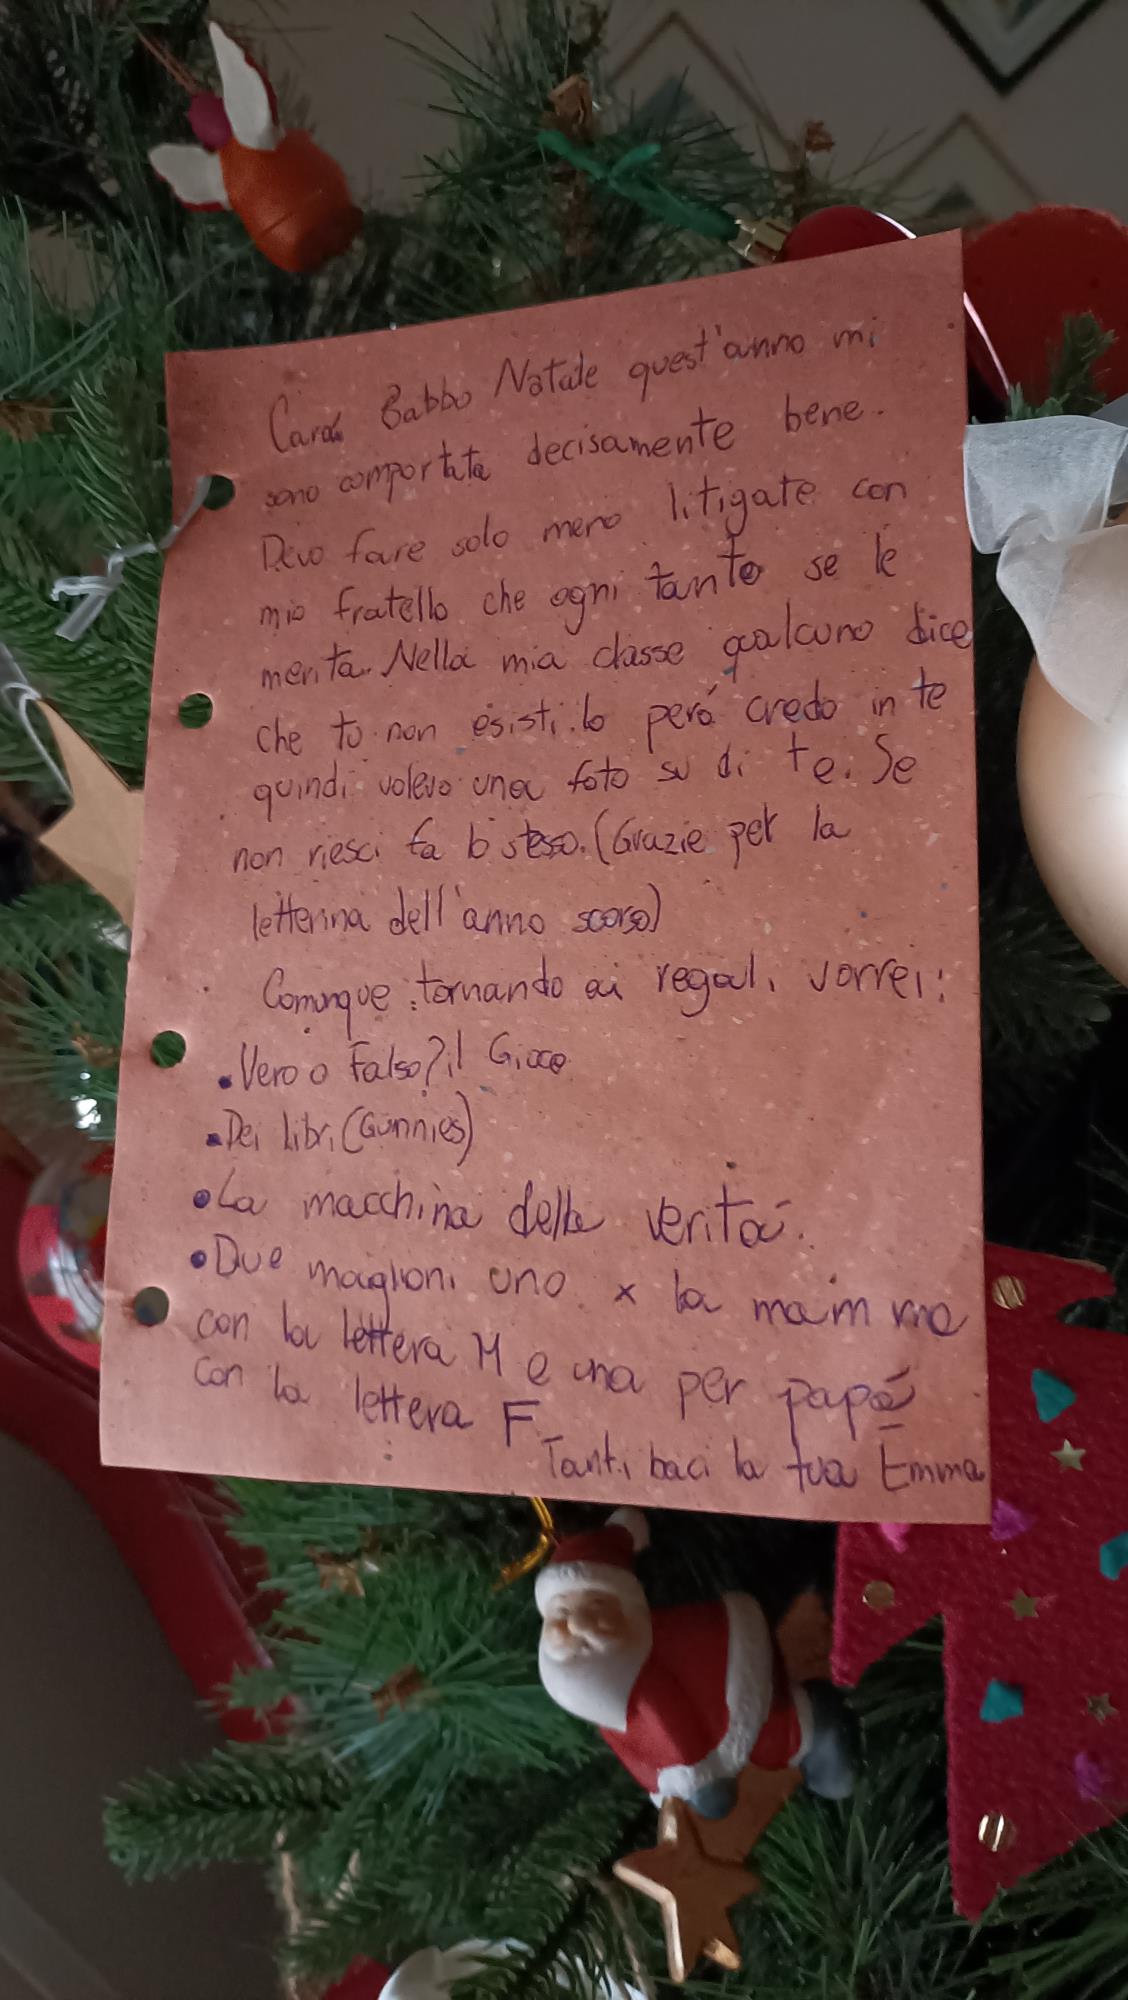 Caro Babbo Natale quest'anno mi
sono comportata decisamente bene.
Devo fare solo meno litigate con
mio fratello che ogni tanto se le
merita. Nella mia classe qualcuno dice
che tu non esisti. Io peró credo in te
quindi volevo una foto su di te. Se
non riesci fa lo stesso. (Grazie per la
letterina dell'anno scorso)
Comunque tornando ai regali vorrei:
• Vero o Falso? il Gioco
• Dei libri (Gunnies)
• La macchina della veritá.
• Due maglioni uno x la mamma
con la lettera M e una per papá
con la lettera F.
Tanti baci la tua Emma